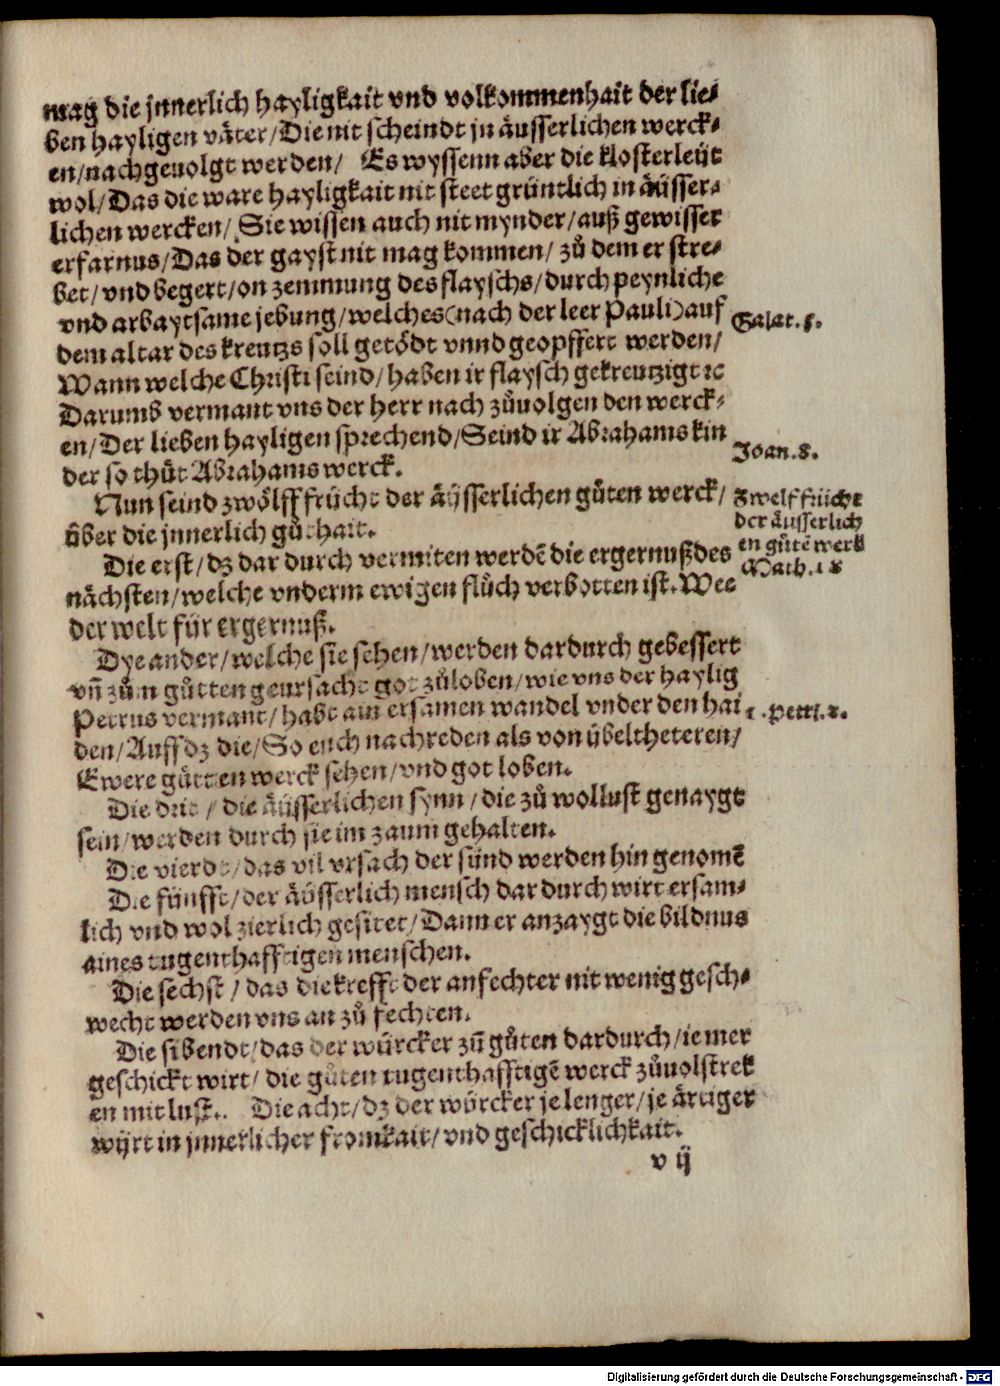 mag die jnnerlich hayligkait vnd volkommenhait der lie⸗
ben hayligen väter/Die nit scheindt jn äusserlichen werck⸗
en/nachgeuolgt werden/ Es wyssenn aber die klosterleüt
wol/Das die ware hayligkait nit steet grüntlich in äüsser⸗
lichen wercken/Sie wissen auch nit mynder/auß gewisser
erfarnus/Das der gayst nit mag kommen/ zů dem er stre⸗
bet/vnd begert/on zemmung des flayschs/durch peynliche
vnd arbaytsame jebung/welches(nach der leer Pauli)auf
dem altar des kreutzs soll getödt vnnd geopffert werden/
Galat. 5.
Wann welche Christi seind/haben ir flaysch gekreutzigt ꝛc
Darumb vermant vns der herr nach zůuolgen den werck⸗
en/Der lieben hayligen sprechend/Seind ir Abrahams kin
der so thůt Abrahams werck.
Joan. 8.
Nun seind zwölff frücht der äüsserlichen gůten werck/
über die jnnerlich gůthait.
Zwelf früchte
der äusserlich
en gůtē werk
Math. 18
Die erst/dz dar durch vermiten werdē die ergernuß des
nächsten/welche vnderm ewigen flůch verbotten ist. Wee
der welt für ergernuß.
Dye ander/welche sie sehen/werden dardurch gebessert
vñ zům gůtten geursacht got zůloben/wie vns der haylig
Petrus vermant/habt ain ersamen wandel vnder den hai
1. Petri. 2.
den/Auff dz die/So euch nachreden als von übeltheteren/
Ewere gůtten werck sehen/vnd got loben.
Die drit/ die äüsserlichen synn/die zů wollust genaygt
sein/werden durch sie im zaum gehalten.
Die vierdt/das vil vrsach der sünd werden hin genomē
Die fünfft/der äüsserlich mensch dar durch wirt ersam⸗
lich vnd wol zierlich gesitet/Dann er anzaygt die bildnus
aines tugenthafftigen menschen.
Die sechst/das die krefft der anfechter nit wenig gesch⸗
wecht werden vns an zů fechten.
Die sibendt/das der würcker zů gůten dardurch/ie mer
geschickt wirt/ die gůten tugenthafftigē werck zůuolstrek
en mit lust. Die acht/dz der würcker je lenger/je ärtiger
wijrt in jnnerlicher fromkait/vnd geschicklichkait.
v ij
Digitalisierung gefördert durch die Deutsche Forschungsgemeinschaft - DFG